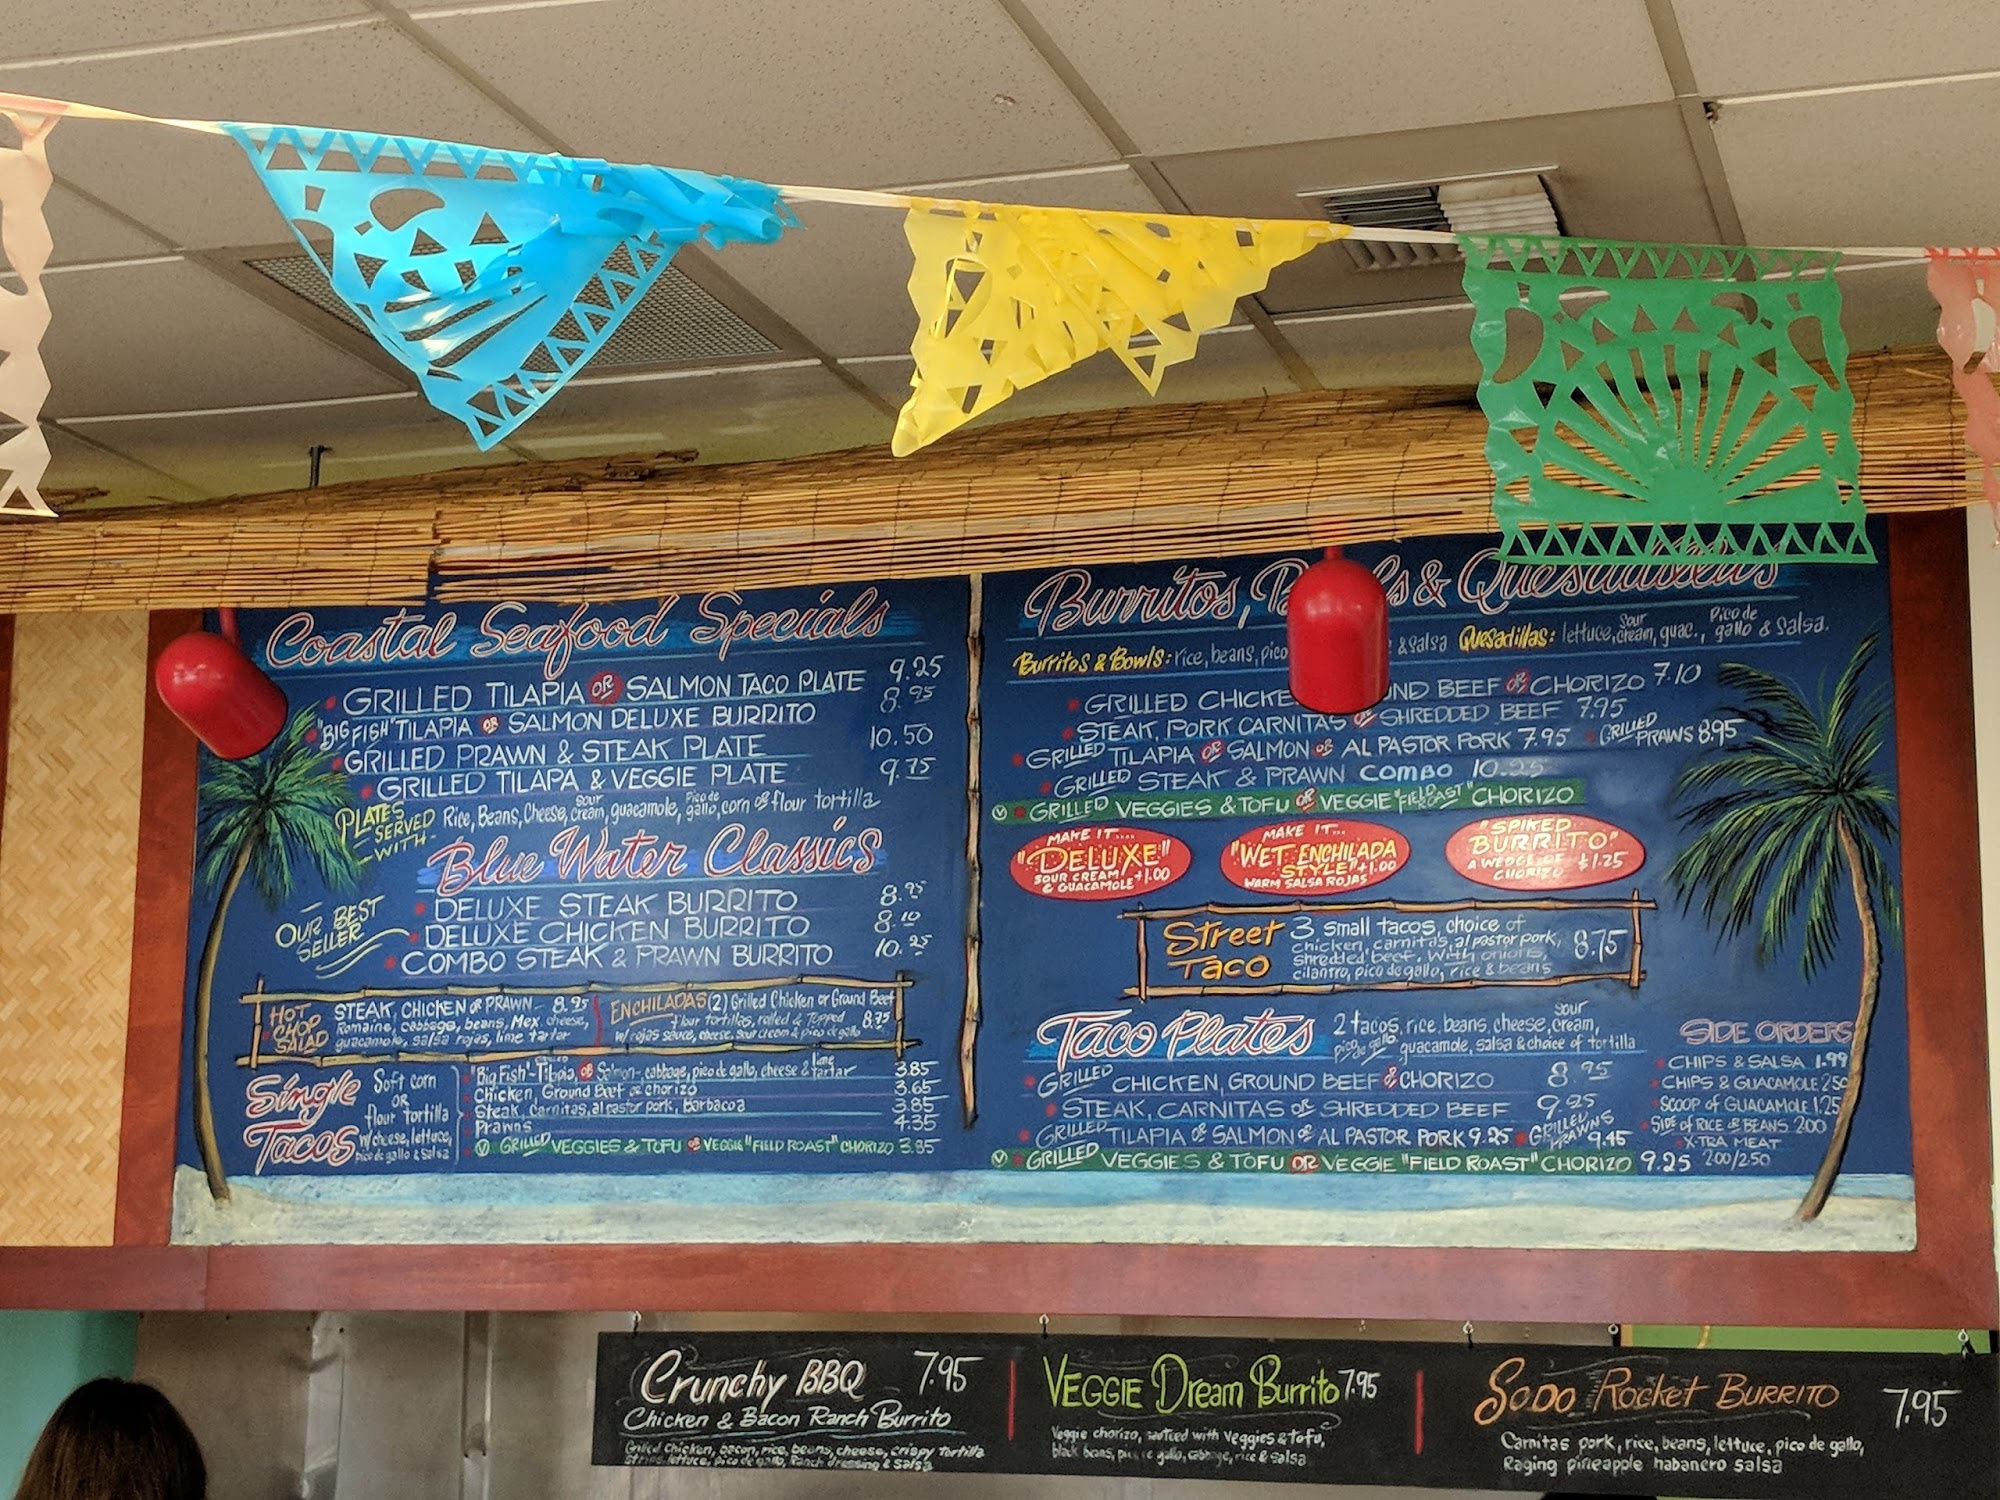 Coastal Seafood Specials
GRILLED TILAPIA OR SALMON TACO PLATE 9.25
"BIG FISH" TILAPIA OR SALMON DELUXE BURRITO 8.95
GRILLED PRAWN & STEAK PLATE 10.50
GRILLED TILAPA & VEGGIE PLATE 9.75
PLATES SERVED WITH- Rice, Beans, Cheese, sour cream, guacamole, Pico de gallo, corn or flour tortilla
Blue Water Classics
OUR BEST SELLER
DELUXE STEAK BURRITO 8.95
DELUXE CHICKEN BURRITO 8.10
COMBO STEAK & PRAWN BURRITO 10.25
HOT CHOP SALAD
STEAK, CHICKEN OR PRAWN- 8.95
Romaine, cabbage, beans, Mex. cheese,
guacamole, salsa rojas, lime tartar
ENCHILADAS (2) Grilled Chicken or Ground Beef
flour tortillas, rolled & Topped 8.75
w/rojas sauce, cheese, sour cream & pico de gallo
Single Tacos
Soft corn
OR
flour tortilla
w/cheese, lettuce,
pico de gallo & salsa
"Big Fish"-Tilapia, OR Salmon- cabbage, pico de gallo, cheese & lime tartar 3.85
Chicken, Ground Beef or chorizo 3.65
Steak, Carnitas, al pastor pork, Barbacoa 3.85
Prawns 4.35
V GRILLED VEGGIES & TOFU OR VEGGIE "FIELD ROAST" CHORIZO 3.85
Burritos, & Quesadillas
Burritos & Bowls: rice, beans, pico & salsa Quesadillas: lettuce, sour cream, guac., Pico de gallo & salsa.
GRILLED BEEF OR CHORIZO 7.10
STEAK, PORK CARNITAS OR SHREDDED BEEF 7.95
GRILLED TILAPIA OR SALMON OR AL PASTOR PORK 7.95 GRILLED PRAWNS 8.95
GRILLED STEAK & PRAWN COMBO 10.25
V GRILLED VEGGIES & TOFU OR VEGGIE "FIELD ROAST" CHORIZO
MAKE IT....
"DELUXE"
SOUR CREAM +1.00
& GUACAMOLE
MAKE IT...
"WET ENCHILADA
STYLE" +1.00
WARM SALSA ROJAS
"SPIKED
BURRITO"
A WEDGE OF $1.25
CHORIZO
Street Taco
3 small tacos, choice of
chicken, carnitas, al pastor pork,
shredded beef. With onions,
cilantro, pico de gallo, rice & beans
8.75
Taco Plates
2 tacos, rice, beans, cheese, sour cream,
pico de gallo, guacamole, salsa & choice of tortilla
GRILLED CHICKEN, GROUND BEEF & CHORIZO 8.95
STEAK, CARNITAS OR SHREDDED BEEF 9.25
GRILLED TILAPIA OR SALMON OR AL PASTOR PORK 9.25 GRILLED PRAWNS 9.45
V GRILLED VEGGIES & TOFU OR VEGGIE "FIELD ROAST" CHORIZO 9.25
SIDE ORDERS
CHIPS & SALSA 1.99
CHIPS & GUACAMOLE 2.50
SCOOP of GUACAMOLE 1.25
SIDE of RICE or BEANS 2.00
X-TRA MEAT
2.00/2.50
Crunchy BBQ 7.95
Chicken & Bacon Ranch Burrito
Grilled Chicken, bacon, rice, beans, cheese, crispy tortilla
strips, lettuce, pico de gallo, Ranch dressing & Salsa
VEGGIE Dream Burrito 7.95
Veggie chorizo, sauteed with veggies & tofu,
black beans, pico de gallo, cabbage, rice & salsa
SoDo Rocket Burrito 7.95
Carnitas pork, rice, beans, lettuce, pico de gallo,
Raging pineapple habanero salsa